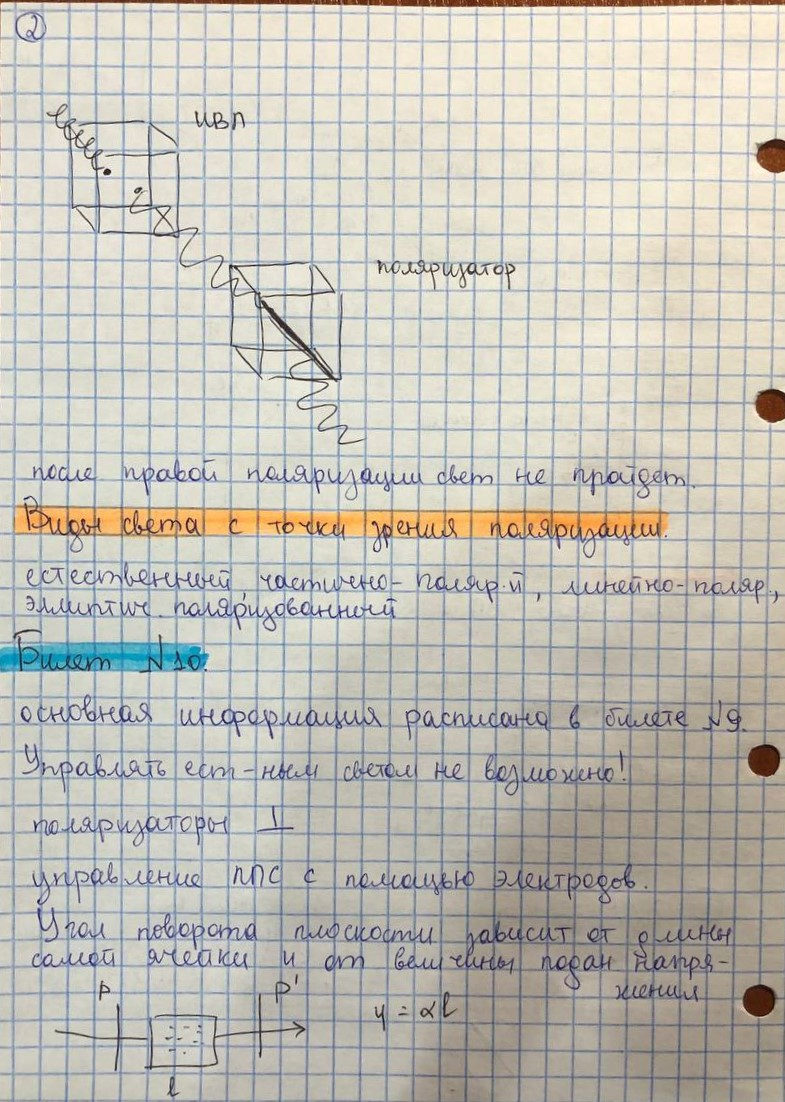 2
ИВЛ
поляризатор
после правой поляризации свет не пройдет.
Виды света с точки зрения поляризации.
естественный, частично-поляр-й, линейно-поляр.,
эллиптич. поляризованный
Билет №10.
основная информация расписана в билете №9.
Управлять ест-ным светом не возможно!
поляризаторы ⊥
управление ППС с помощью электродов.
Угол поворота плоскости зависит от длины
самой ячейки и от величины подан напря-
жения
P P' y = αl
l